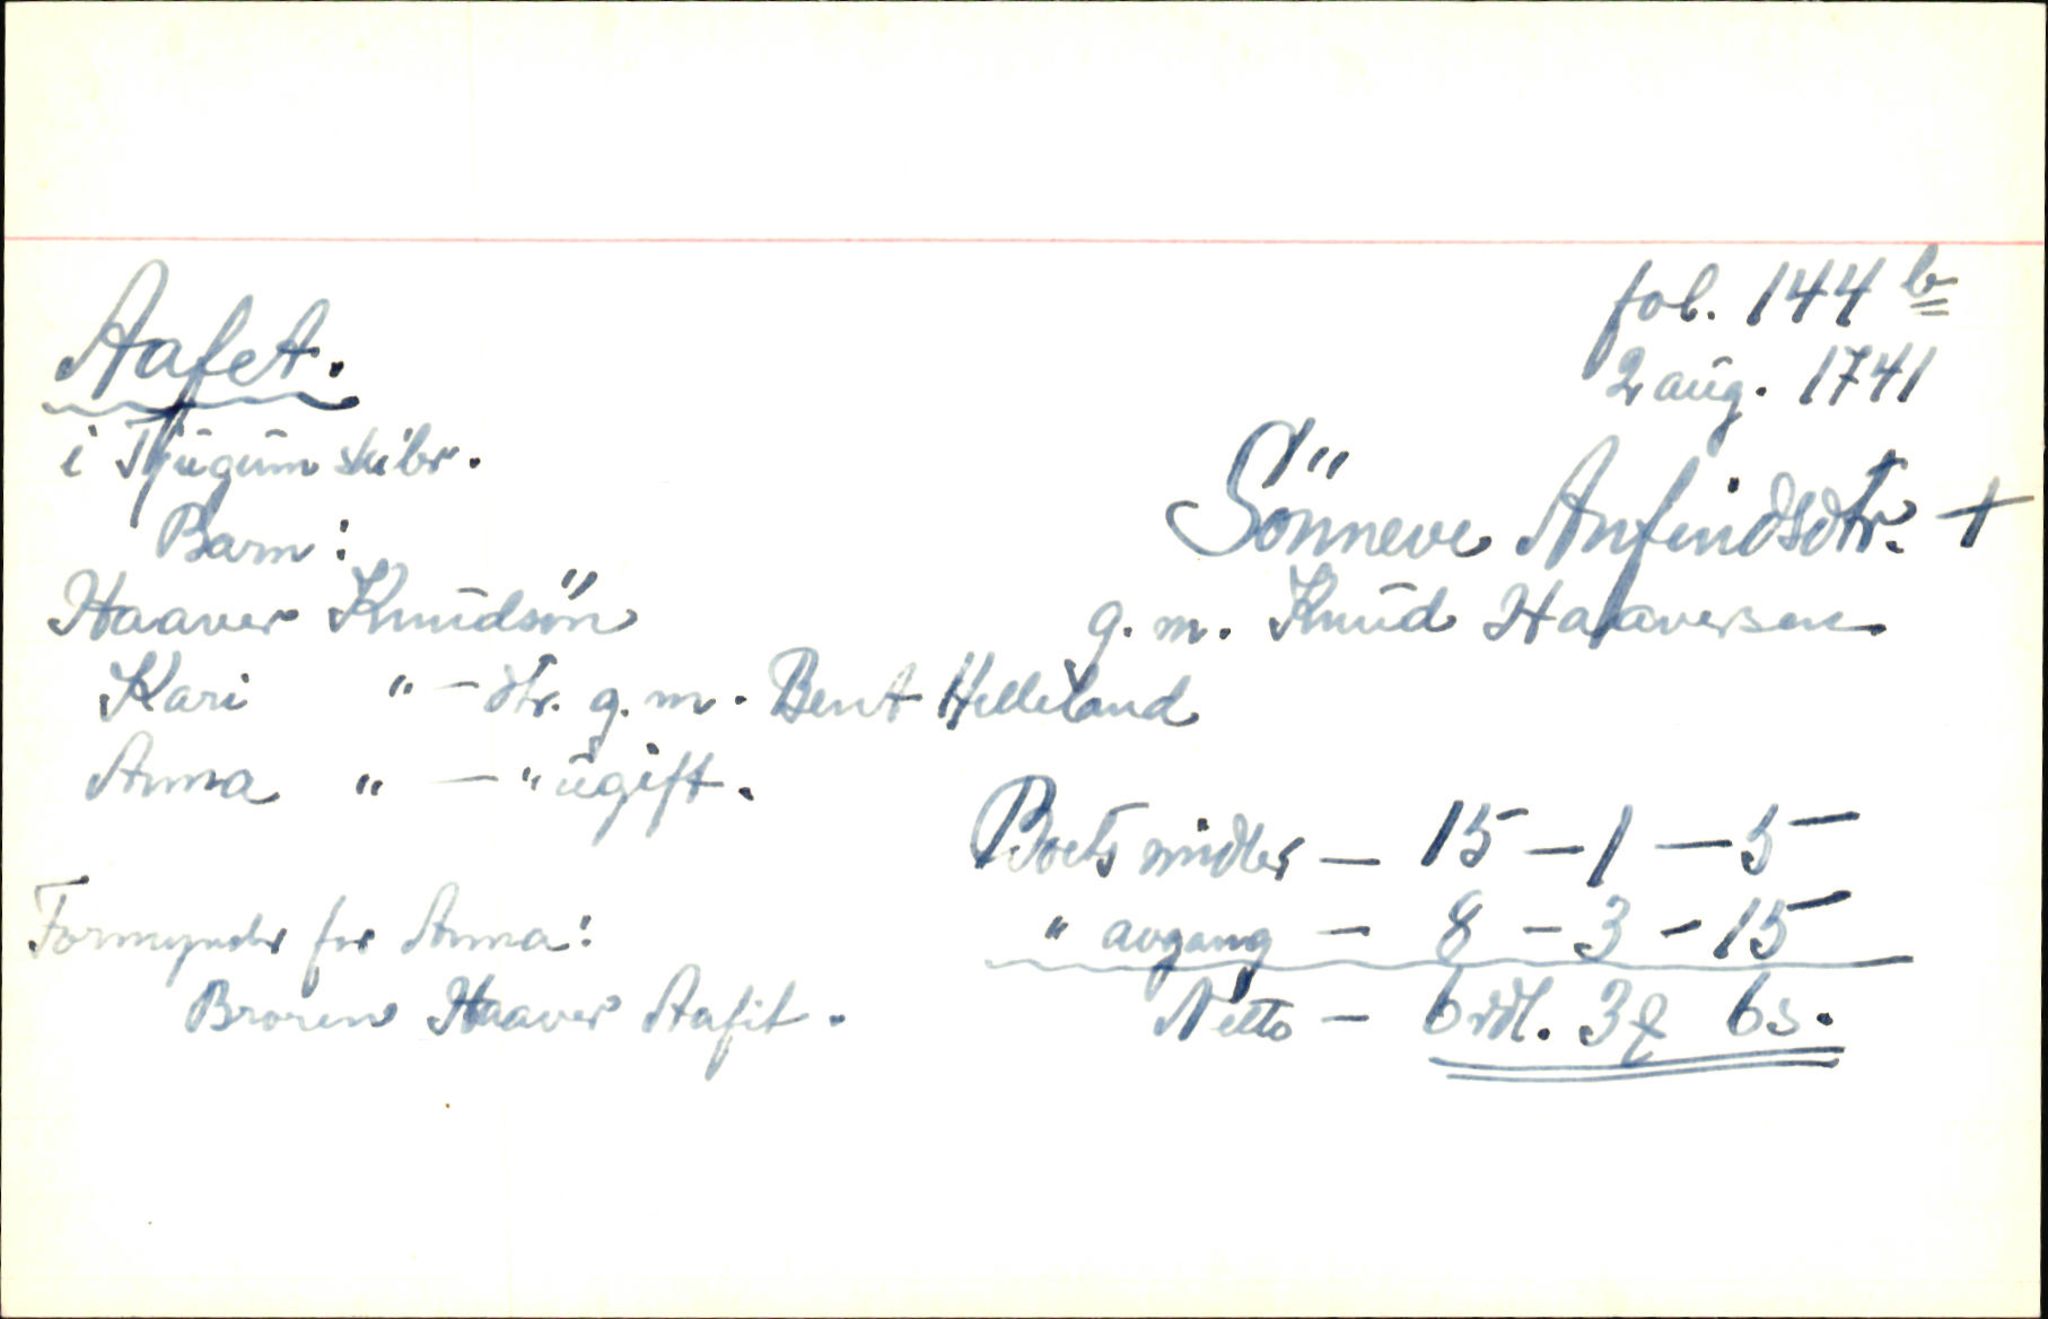 fol. 144 b
Aafet.
2 aug. 1741
i Tjugum skibr.
Sönneve Anfindsdtr. +
Barn:
Haaver Knudsön
g. m. Knud Haaversen.
Kari " — dtr. g. m. Bent Helleland
Anna " — " ugift.
Boets midler — 15 — 1 — 5 —
Formynder for Anna:
" avgang — 8 — 3 — 15 —
Broren Haaver Aafet.
Netto — 6 rdl. 3 ꝑ 6 s.